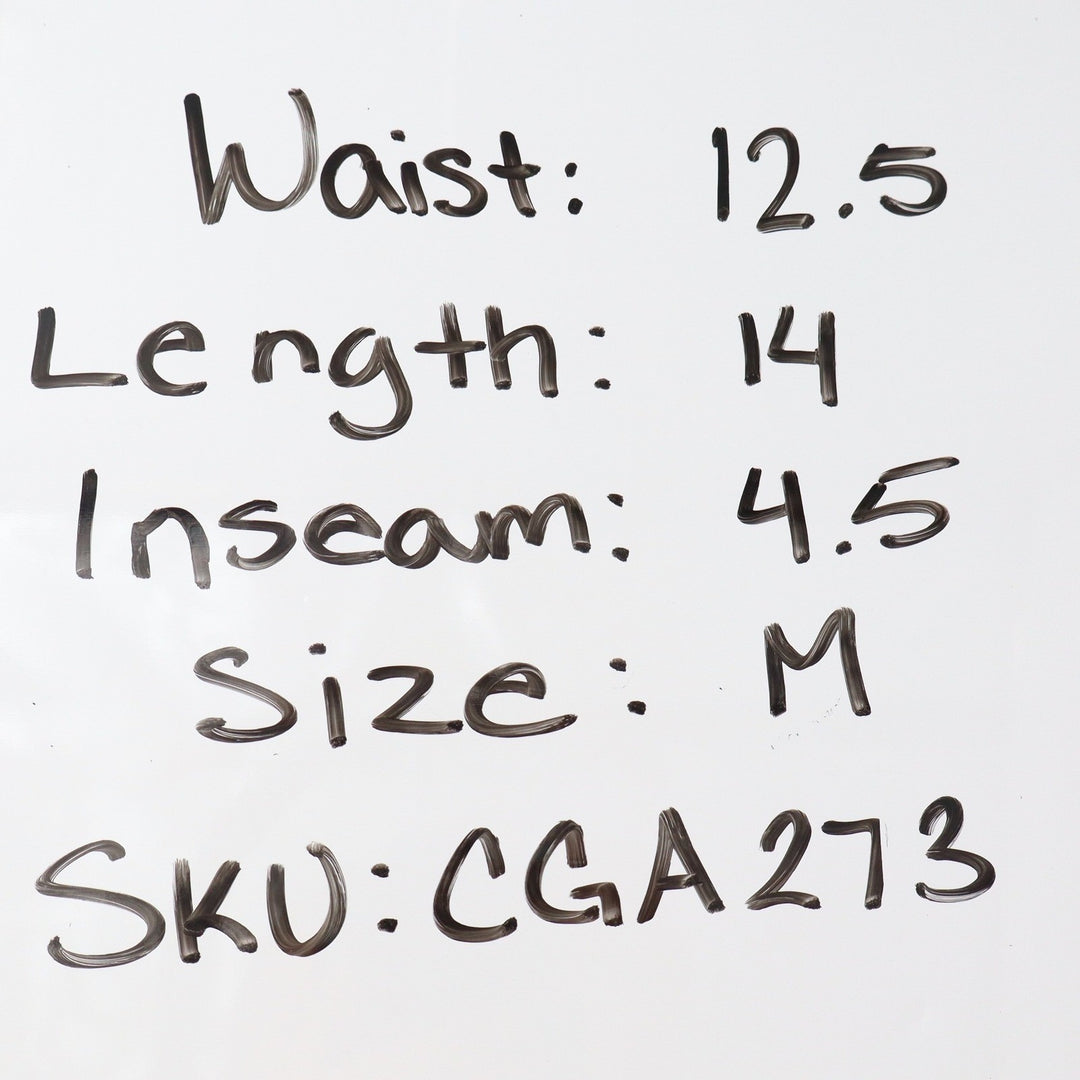 Waist: 12.5
Length: 14
Inseam: 4.5
Size: M
SKU: CGA273